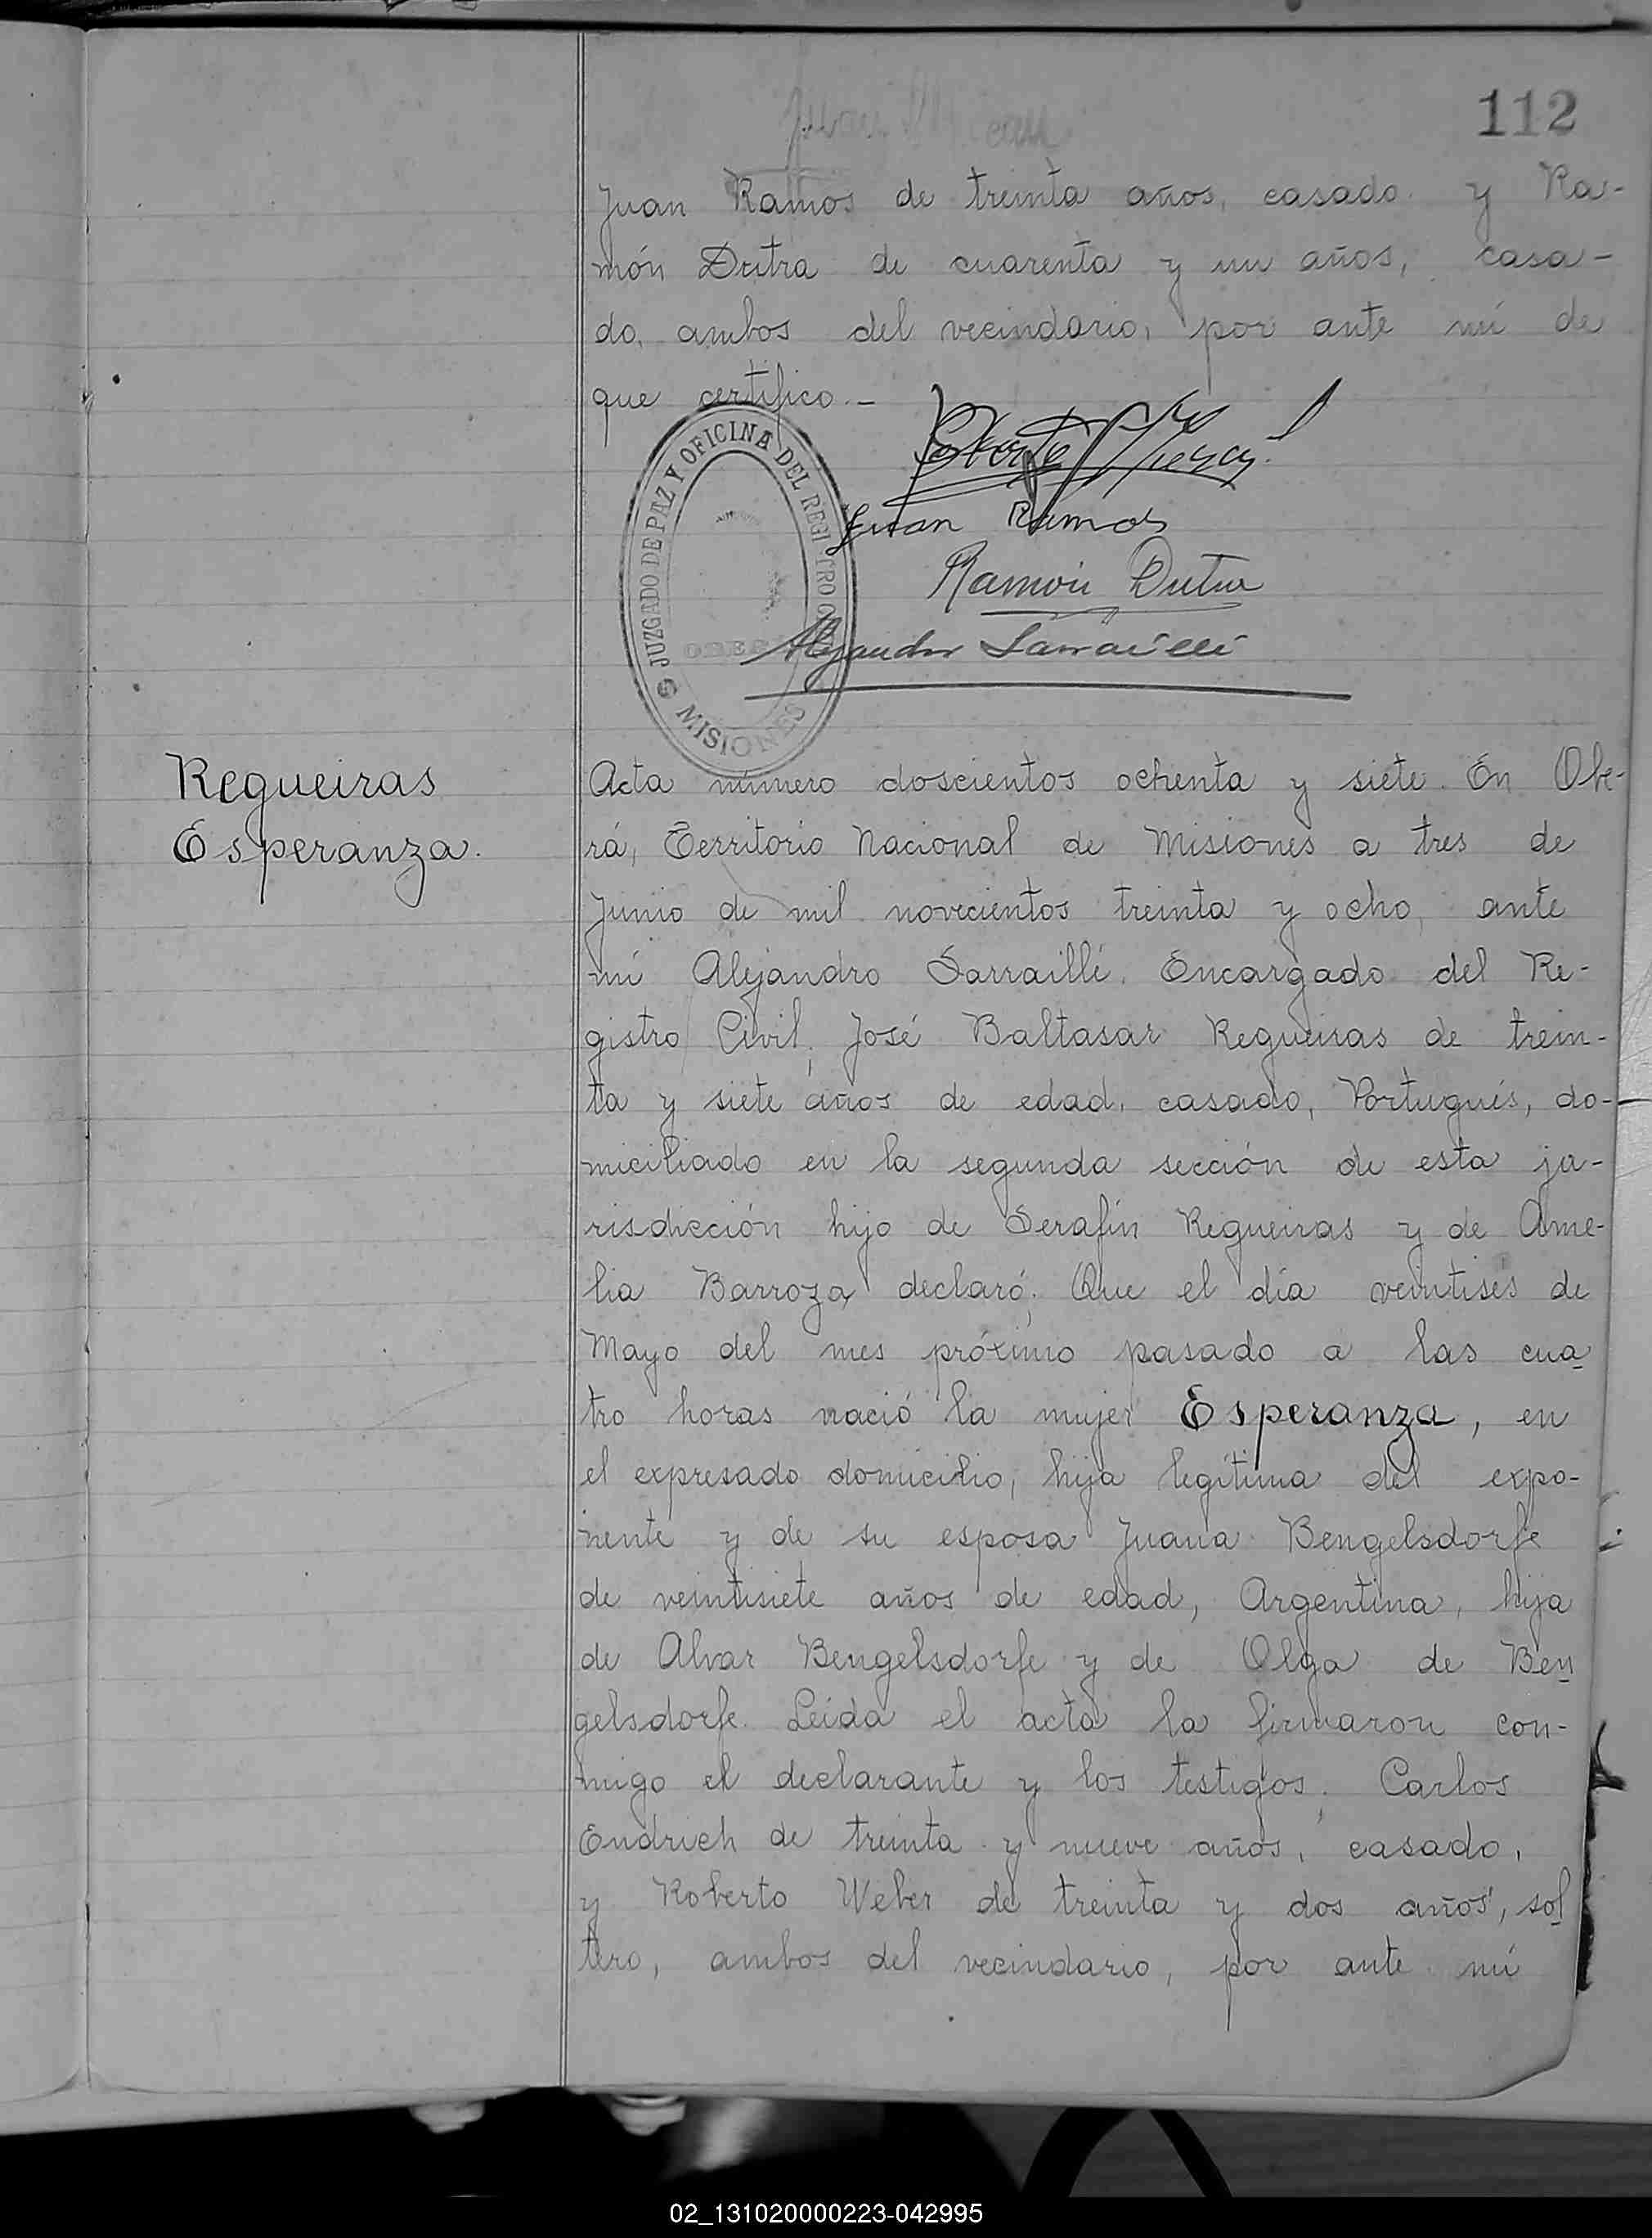 112
Juan Ramos de treinta años, casado y Ra-
món Dutra de cuarenta y un años, casa-
do, ambos del vecindario, por ante mí de
que certifico.-
Juan Ramos
Ramón Dutra
Alejandro Sarraillé
JUZGADO DE PAZ Y OFICINA DEL REGISTRO
MISIONES
Regueiras
Esperanza.
Acta número doscientos ochenta y siete. En Obe-
rá, Territorio Nacional de Misiones a tres de
Junio de mil novecientos treinta y ocho, ante
mí Alejandro Sarraillé. Encargado del Re-
gistro Civil, José Baltasar Regueiras de trein-
ta y siete años de edad, casado, Portugués, do-
miciliado en la segunda sección de esta ju-
risdicción hijo de Serafín Regueiras y de Ame-
lia Barroza declaró; Que el día veintiseis de
Mayo del mes próximo pasado a las cua
tro horas nació la mujer Esperanza, en
el expresado domicilio, hija legítima del expo-
nente y de su esposa Juana Bengelsdorfe
de veintisiete años de edad, Argentina, hija
de Alvar Bengelsdorfe y de Olga de Ben
gelsdorfe. Leída el acta la firmaron con-
migo el declarante y los testigos; Carlos
Endrich de treinta y nueve años, casado,
y Roberto Weber de treinta y dos años, sol
tero, ambos del vecindario, por ante mí
02_131020000223-042995